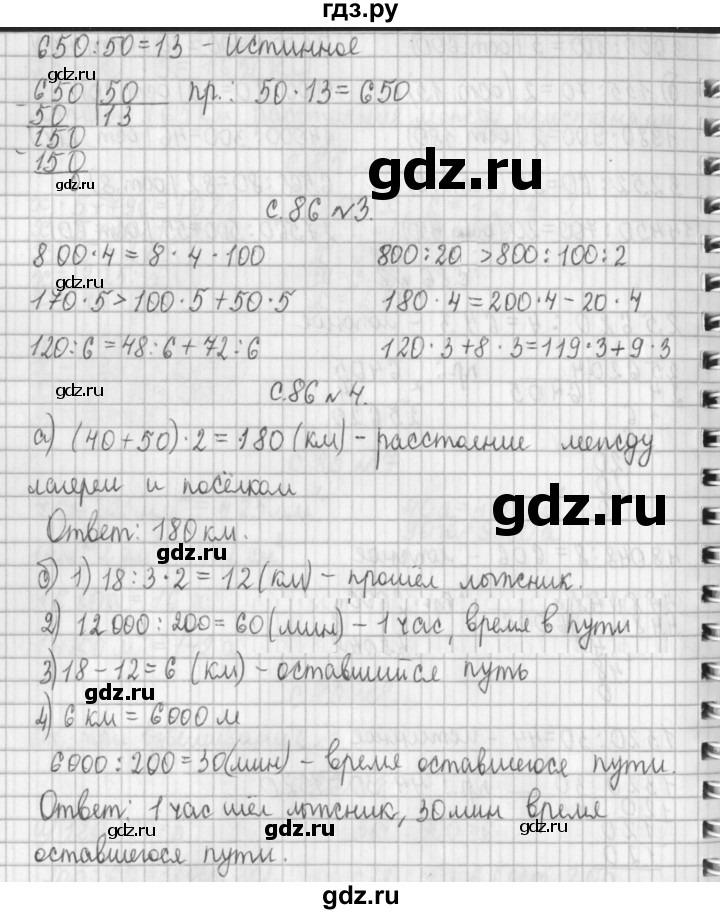 гдз.ру
650:50=13 - Истинное
gdz.ru
650 50 пр.: 50·13=650
50 13
150
150
gdz.ru
0
gdz.ru
с.86 №3.
800·4=8·4·100 800:20 >800:100:2
gdz.ru
170·5>100·5+50·5 180·4=200·4-20·4
120:6=48:6+72:6 120·3+8·3=119·3+9·3
gdz.ru
с.86 №4.
а) (40+50)·2=180 (км) - расстояние между
лагерем и посёлком
gdz.ru
Ответ: 180 км.
gdz.ru
б) 1) 18:3·2=12 (км) - прошёл лыжник.
2) 12000:200=60(мин) - 1 час, время в пути
3) 18-12=6 (км) - оставшийся путь
gdz.ru
4) 6 км = 6000 м
6000:200=30(мин) - время оставшегося пути.
Ответ: 1 час шёл лыжник, 30 мин время
gdz.ru gdz.ru gdz.ru
оставшегося пути.
gdz.ru